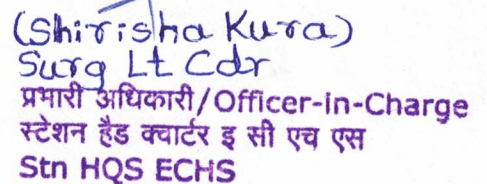 (Shirisha Kura)
Surg Lt Cdr
प्रभारी अधिकारी/Officer-in-Charge
स्टेशन हैड क्वार्टर इ सी एच एस
Stn HQS ECHS